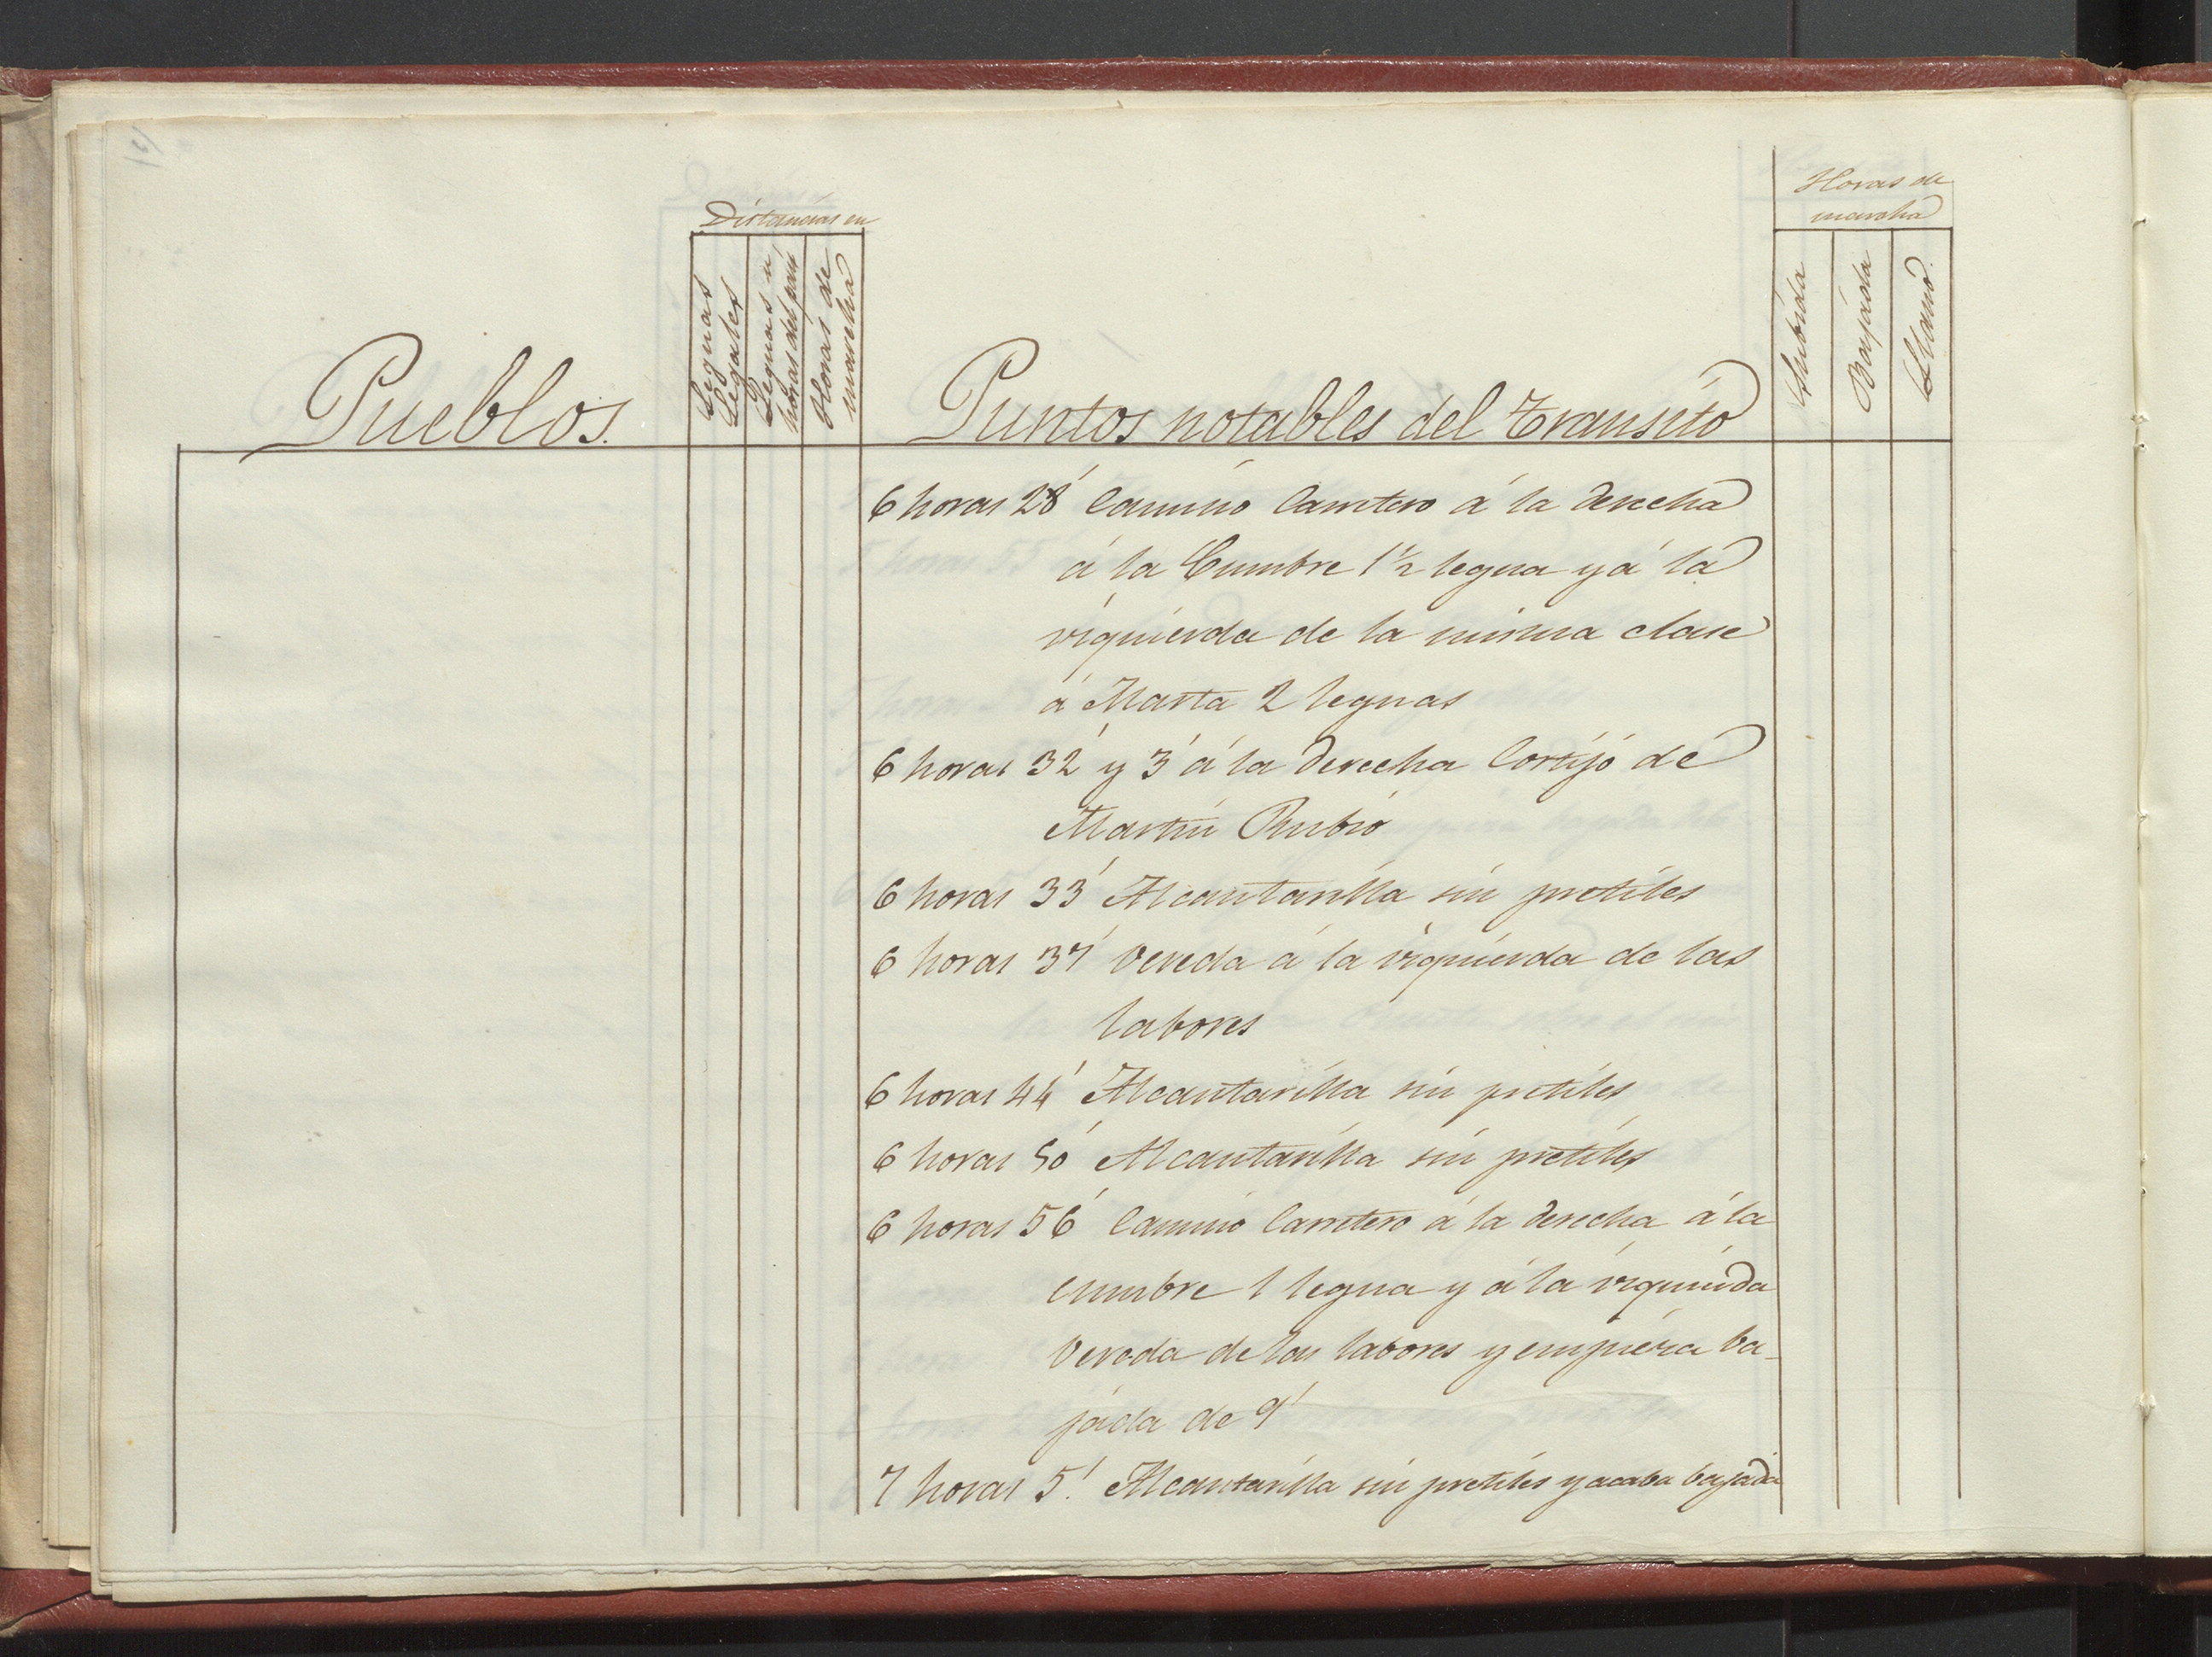 Distancias en
Horas de
marcha
Pueblos.
Leguas
Legales
Leguas u
horas del pais
Horas de
marcha
Puntos notables del Transito
Subida
Bajada
Llano.
6 horas 28' Camino Carretero á la derecha
á la Cumbre 1½ legua y á la
izquierda de la misma clase
á Marta 2 leguas
6 horas 32' y 3' á la derecha Cortijo de
Martin Rubio
6 horas 33' Alcantarilla sin pretiles
6 horas 37' Vereda á la izquierda de las
labores
6 horas 44' Alcantarilla sin pretiles
6 horas 50' Alcantarilla sin pretiles
6 horas 56' Camino Carretero á la derecha á la
cumbre 1 legua y á la izquierda
Vereda de las labores y empieza ba-
jada de 9'
7 horas 5'. Alcantarilla sin pretiles y acaba bajada